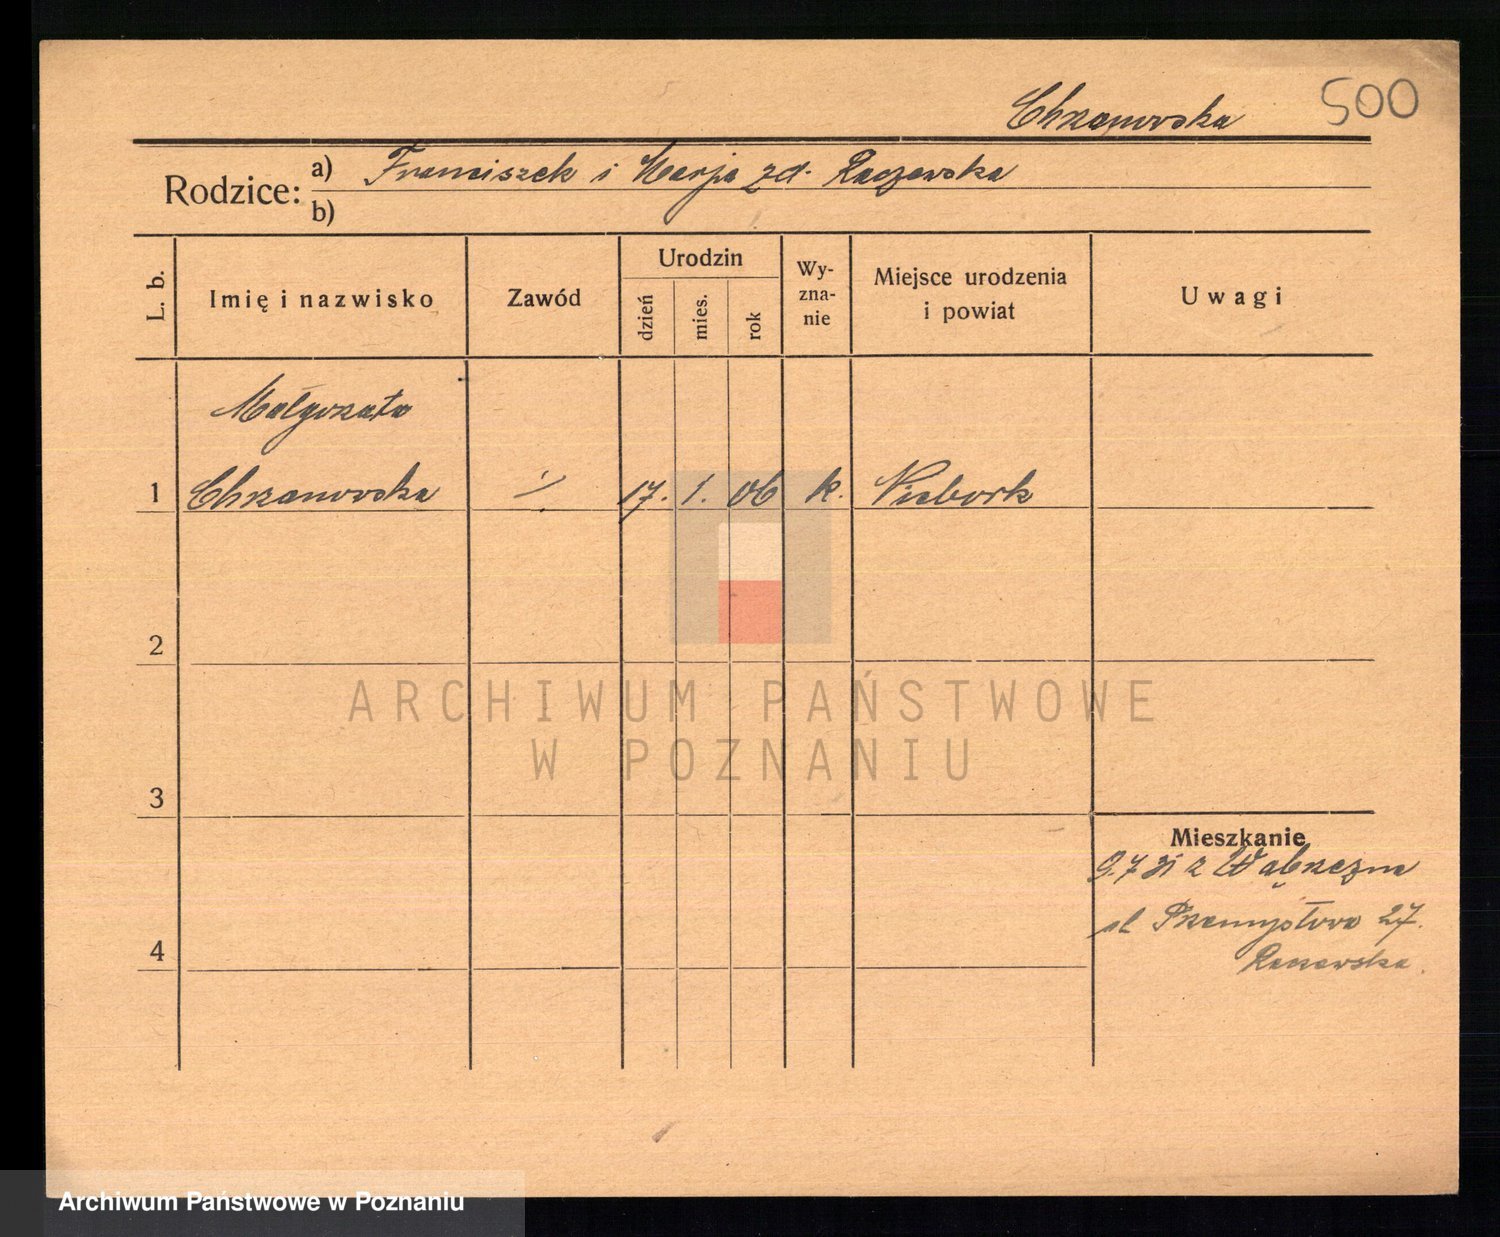 Chrzanowska 500
Rodzice: a) Franciszek i Marja zd. Raczewska
b)
L. b. Imię i nazwisko Zawód Urodzin dzień mies. rok Wy-zna-nie Miejsce urodzenia i powiat Uwagi
Małgorzata
1 Chrzanowska ./. 17. 1. 06 k. Niebork
2
ARCHIWUM PAŃSTWOWE
W POZNANIU
3
Mieszkanie
9.7 31 z Wąbrzezna
ul Przemysłowa 27.
4
Archiwum Państwowe w Poznaniu